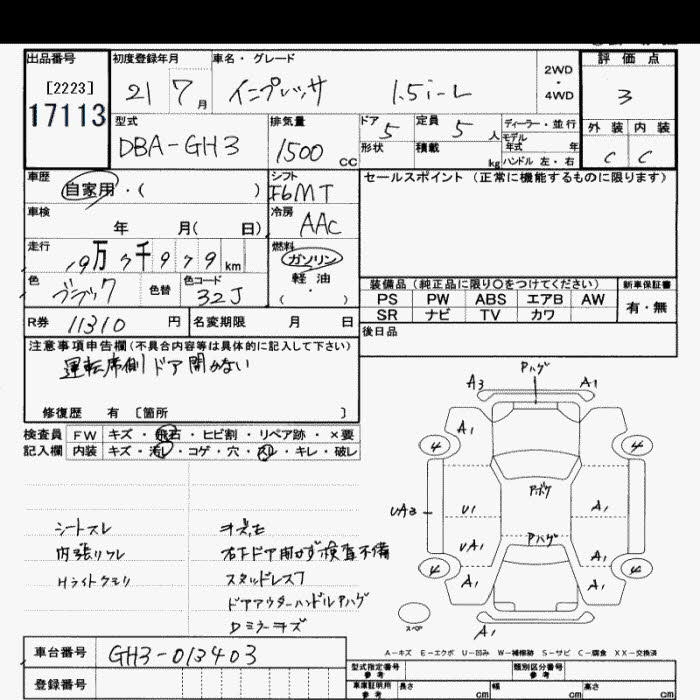 出品番号
[2223]
17113
初度登録年月
21 7 月
車名・グレード
インプレッサ 1.5i-L
2WD
・
4WD
評価点
3
型式
DBA-GH3
排気量
1500 CC
ドア 5
定員 5 人
形状
積載 kg
ディーラー・並行
モデル
年式 年
ハンドル 左・右
外装 内装
C C
車歴
自家用・( )
シフト
F6MT
セールスポイント (正常に機能するものに限ります)
車検
年 月( 日)
冷房
AAC
走行
19万 7千 9 7 9 km
燃料
ガソリン
軽油
( ・ )
色
ブラック
色替
色コード
32J
装備品 (純正品に限り○をつけてください)
新車保証書
PS PW ABS エアB AW
有・無
SR ナビ TV カワ
R券 11310 円
名変期限 月 日
後日品
注意事項申告欄(不具合内容等は具体的に記入して下さい)
運転席側ドア開かない
修復歴 有 〔箇所 〕
検査員 FW キズ・飛石・ヒビ割・リペア跡・×要
記入欄 内装 キズ・汚レ・コゲ・穴・スレ・キレ・破レ
シートスレ
内張リスレ
Hライトクモリ
キズ、モ
右Fドア開かず検査不備
スタッドレス7
ドアアウターハンドルアハゲ
Dミラーキズ
Pハゲ
A3 A1
A1
4 4
アボケ
UA3 U1 A1
Pハゲ
UA1 A1
4 4
A1 A1
スペア
A1
A-キズ E-エクボ U-凹み W-補修跡 S-サビ C-腐食 XX-交換済
車台番号 GH3-013403
登録番号
型式指定番号
参考
類別区分番号
参考
車庫証明用
参考
長さ cm 幅 cm 高さ cm